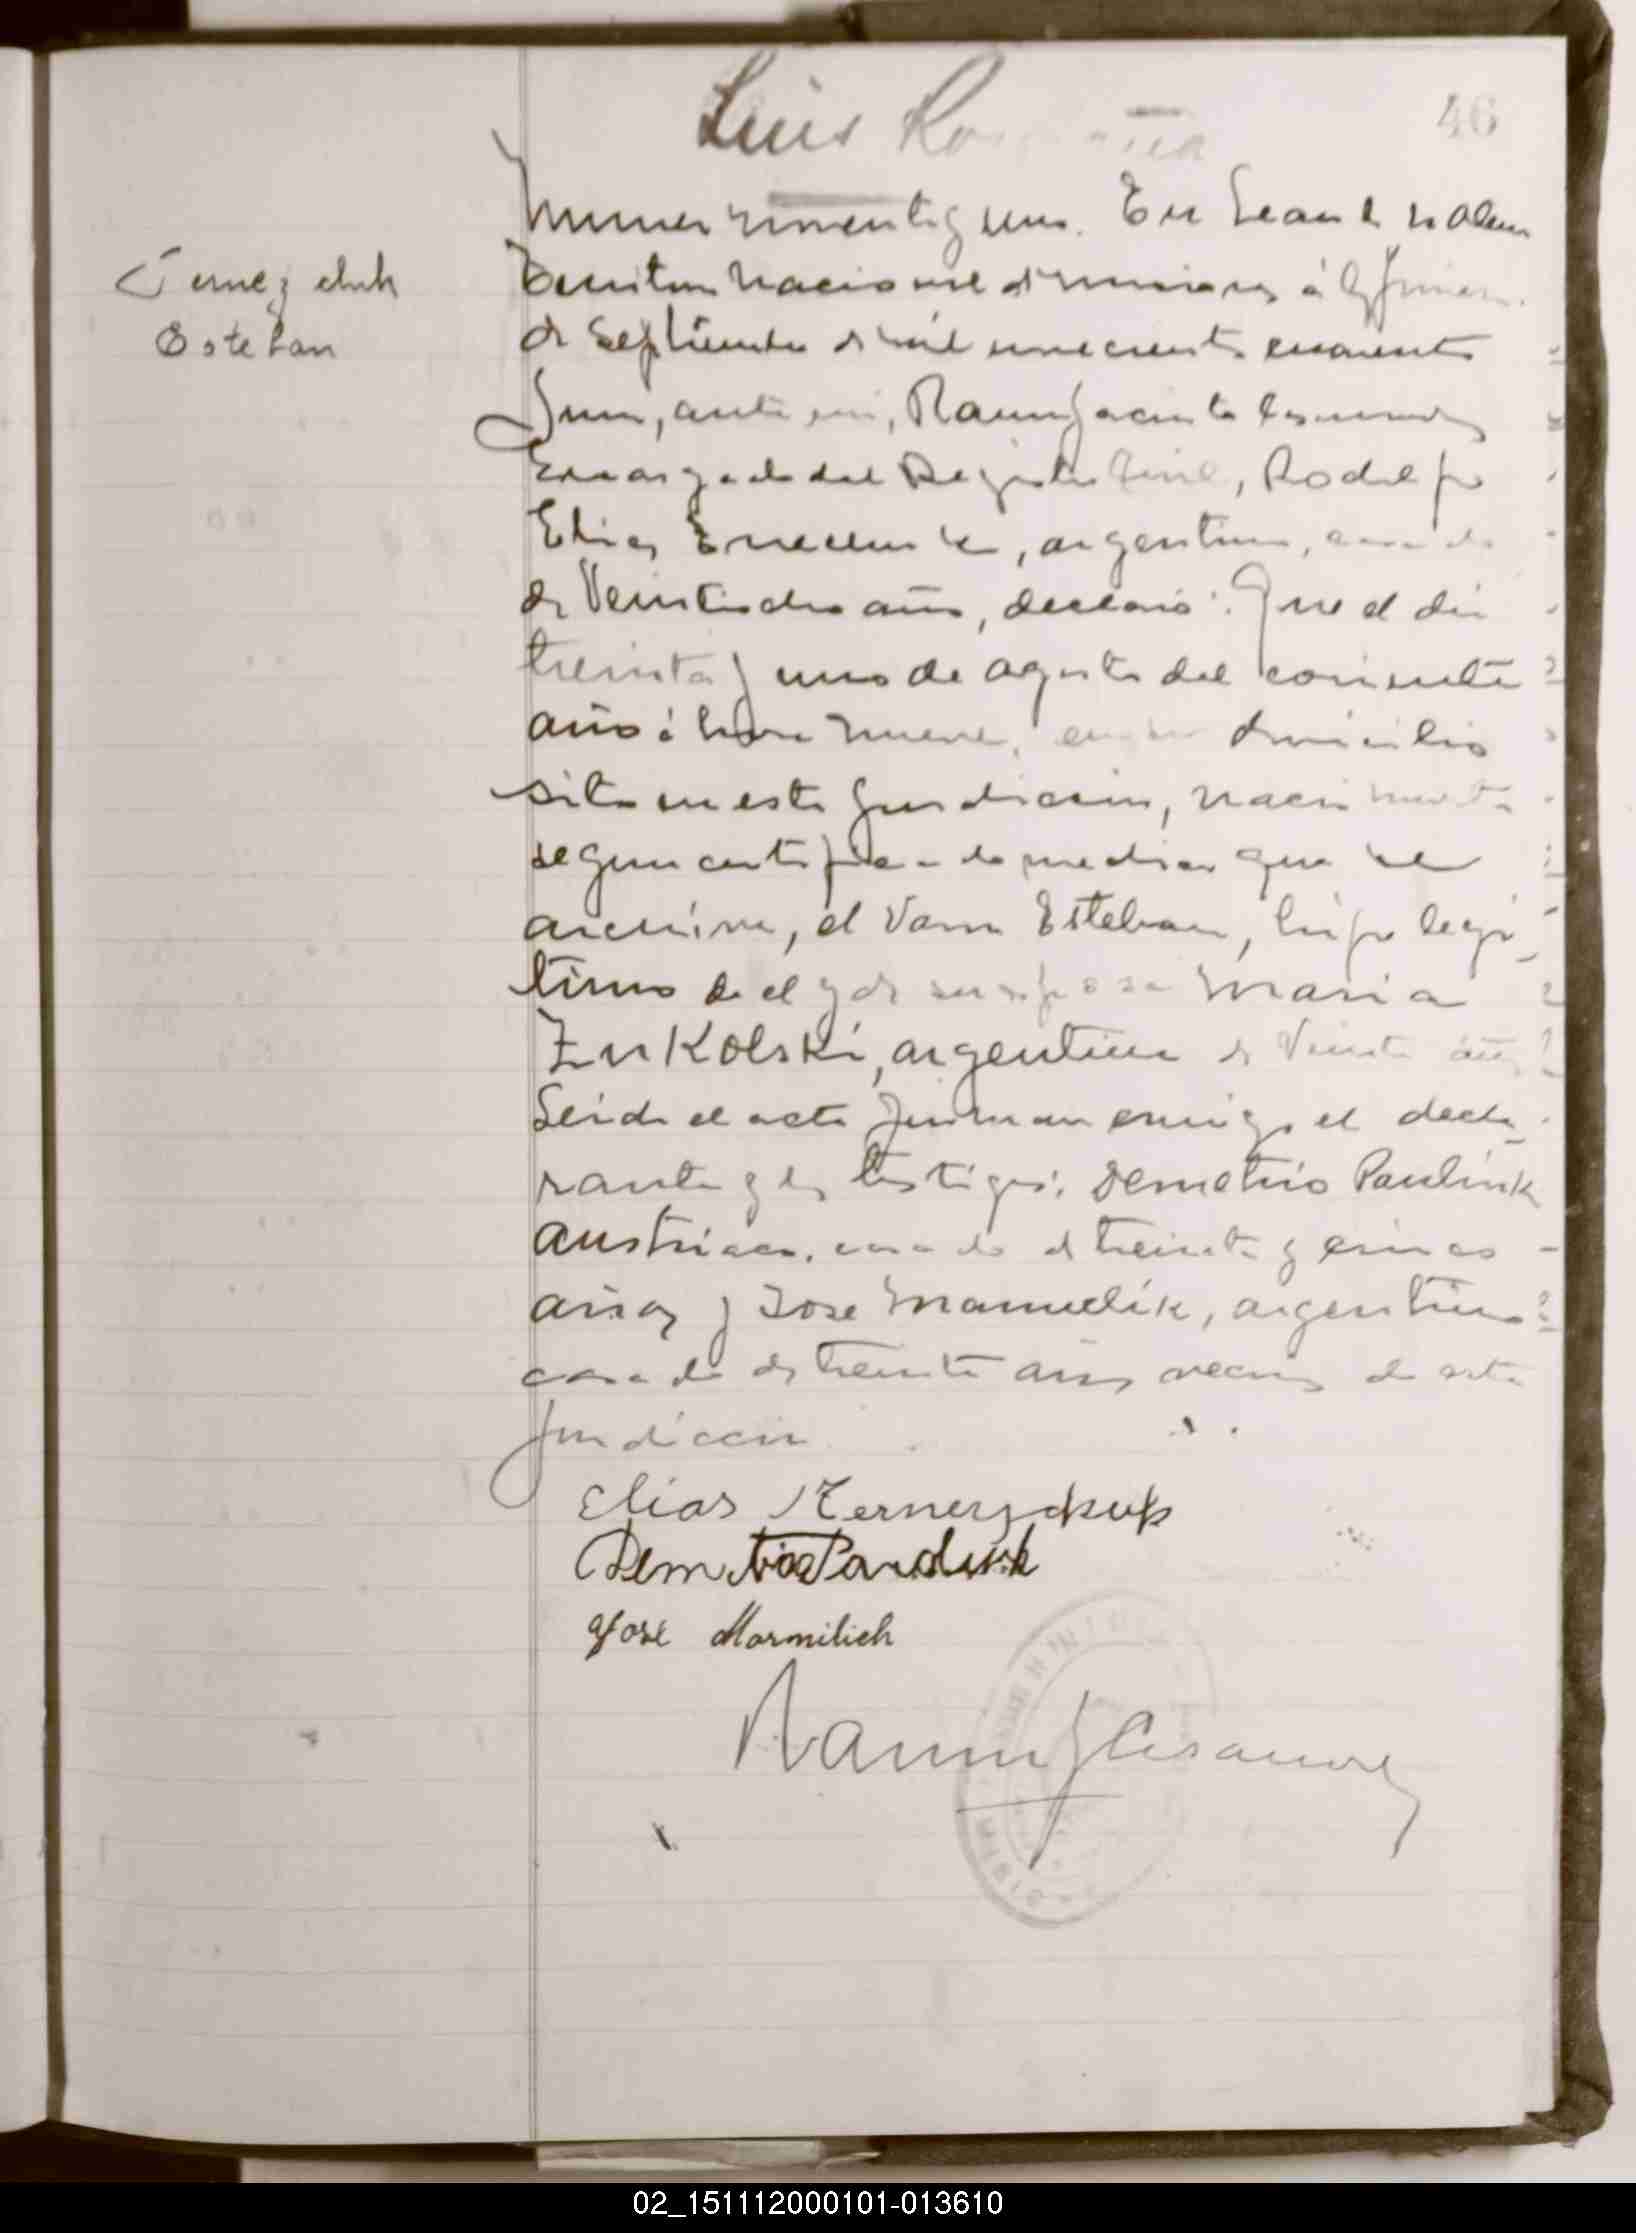 Luis
46
Numero noventa y uno. En Leandro N Alem
Cernezchuk
Esteban
Territorio Nacional de Misiones á los primero
de Septiembre de mil novecientos cuarenta
y uno, ante mi, Ramon Jacinto Casanova
Encargado del Registro Civil, Rodolfo
Elias, argentino, casado
de Veintiocho años, declaró: Que el dia
treinta y uno de agosto del corriente
año á hora nueve, en su domicilio
sito en esta jurisdiccion, nació
segun certificado medico que se
archiva, el Varon Esteban, hijo legi
timo de el y de su esposa Maria
Zukolski, argentina de Veinte años
Leida el acta firman conmigo el decla
rante y los testigos: Demetrio Paulink
austriaco, casado de treinta y cinco
años y Jose Manuelik, argentino
casado de treinta años vecinos de esta
jurisdiccion
Elias
Demetrio
José Marmilich
Ramon J Casanova
02_151112000101-013610